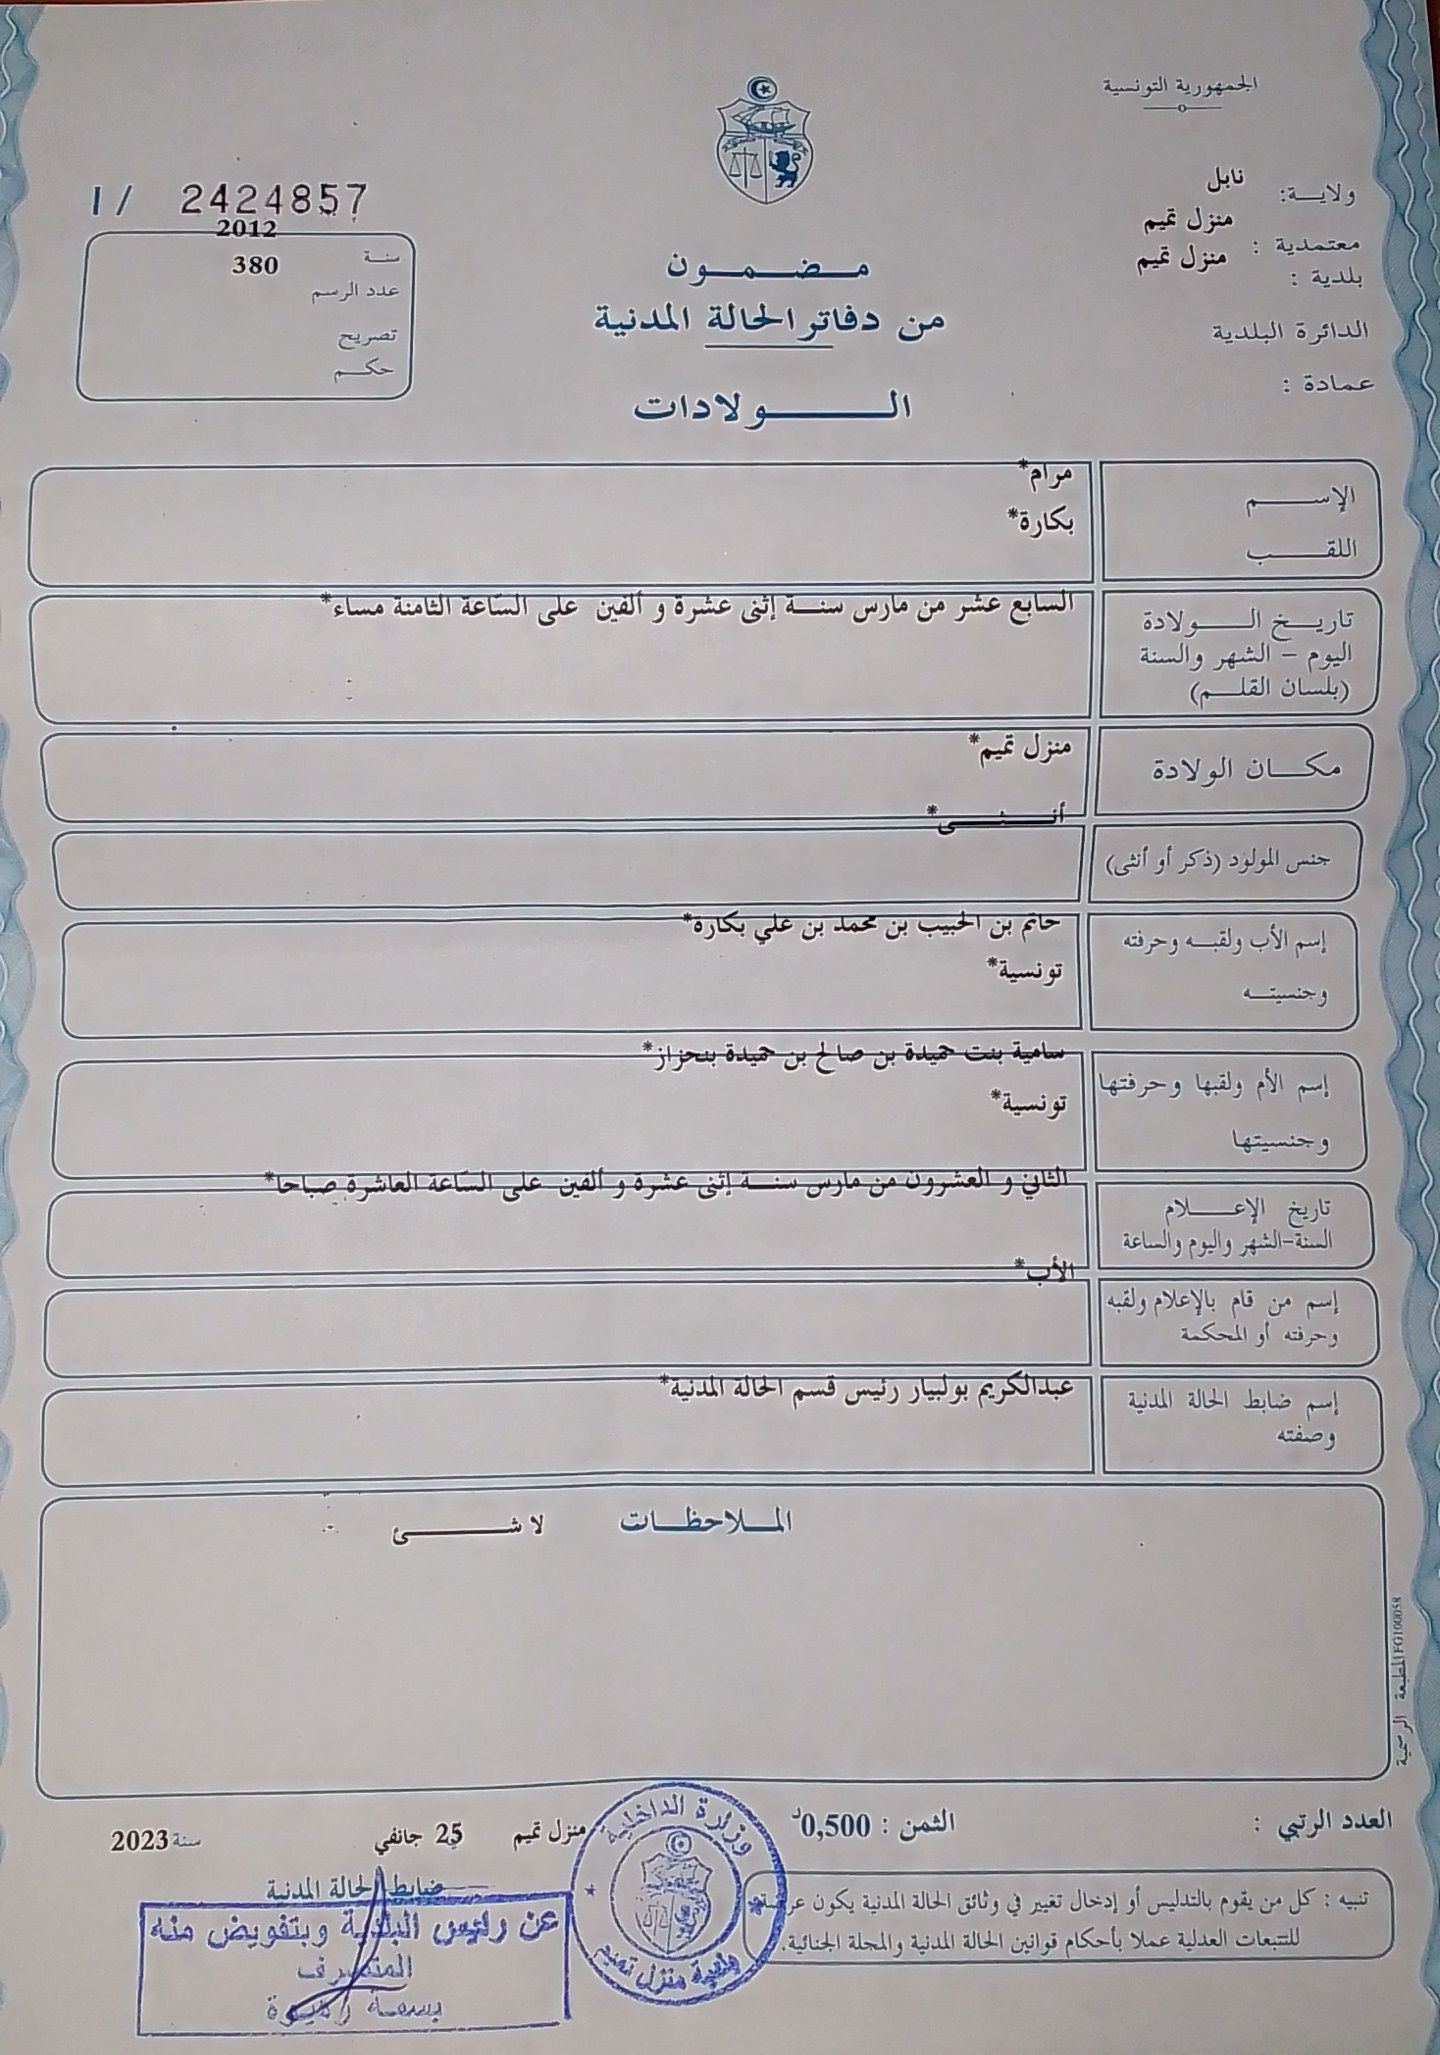 الجمهورية التونسية
ولايــة: نابل
معتمدية : منزل تميم
بلدية : منزل تميم
الدائرة البلدية
عمادة :
مـضـمـون
من دفاتر الحالة المدنية
الـولادات
I / 2424857
سنة 2012
عدد الرسم 380
تصريح
حكم
الإسـم مرام*
اللقـب بكارة*
تاريـخ الـولادة
اليوم – الشهر والسنة
(بلسان القلـم)
السابع عشر من مارس سنـة إثنى عشرة و ألفين على السّاعة الثامنة مساء*
مكـان الولادة منزل تميم*
جنس المولود (ذكر أو أنثى) أنـثـى*
إسم الأب ولقبـه وحرفته
وجنسيتـه
حاتم بن الحبيب بن محمد بن علي بكارة*
تونسية*
إسم الأم ولقبها وحرفتها
وجنسيتها
سامية بنت حميدة بن صالح بن حميدة بنحزاز*
تونسية*
تاريخ الإعـلام
السنة-الشهر واليوم والساعة
الثاني و العشرون من مارس سنـة إثنى عشرة و ألفين على السّاعة العاشرة صباحا*
إسم من قام بالإعلام ولقبه
وحرفته أو المحكمة
الأب*
إسم ضابط الحالة المدنية
وصفته
عبدالكريم بولبيار رئيس قسم الحالة المدنية*
المـلاحظـات لا شـئ
المطبعة الرسمية FG100058
العدد الرتبي :
الثمن : 0,500د
منزل تميم 25 جانفي سنة 2023
ضابط الحالة المدنية
عن رئيس البلدية وبتفويض منه
المتصرف
بسمة
وزارة الداخلية
بلدية منزل تميم
تنبيه : كل من يقوم بالتدليس أو إدخال تغيير في وثائق الحالة المدنية يكون عرضة
للتتبعات العدلية عملا بأحكام قوانين الحالة المدنية والمجلة الجنائية.